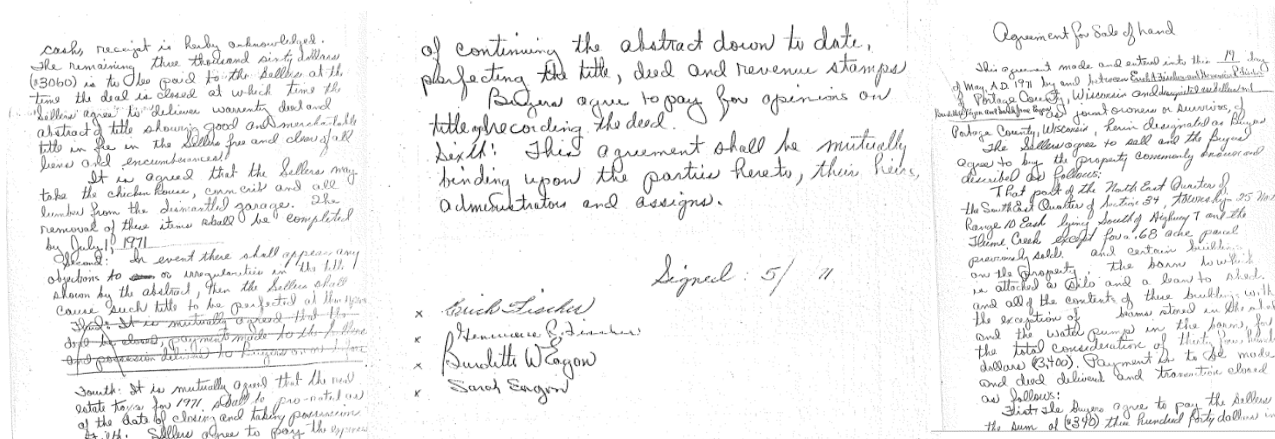 cash, receipt is herby acknowledged.
The remaining three thousand sixty dollars
($3060) is to be paid to the Sellers at the
time the deal is closed at which time the
Sellers agree to deliver warrenty deed and
abstract of title showing good and merchantable
title in fee in the Sellers free and clear of all
liens and encumberances.
It is agreed that the Sellers may
take the chicken house, corn crib and all
lumber from the dismantled garage. The
removal of these items shall be completed
by July 1, 1971
Second: In event there shall appear any
objections to or irregularities in the title
shown by the abstract, then the Sellers shall
cause such title to be perfected at their
Third: It is mutually agreed that the
closed, payment made to the Sellers
and possession delivered to Buyers on or before
Fourth: It is mutually agreed that the real
estate taxes for 1971 shall be pro-rated as
of the date of closing and taking possession
Sellers agree to pay the expense
of continuing the abstract down to date,
perfecting the title, deed and revenue stamps
Buyers agree to pay for opinions on
title and recording the deed.
Sixth: This agreement shall be mutually
binding upon the parties hereto, their heirs,
administrators and assigns.
Signed: 5/ 11
x Erich Fischer
x Genevieve E. Fischer
x Burdette W Eagon
x Sarah Eagon
Agreement for Sale of Land
This agreement made and entered into this 19 day
of May, A.D. 1971 by and between Erich Fischer and Genevieve E. Fischer
of Portage County, Wisconsin and designated as Sellers and
Burdette Eagon and Sarah Jane Eagon as joint owners or survivors, of
Portage County, Wisconsin, herein designated as Buyers
The Sellers agree to sell and the Buyers
agree to buy the property commonly known and
described as follows:
That part of the North East Quarter of
the South East Quarter of Section 34, township 25 North
Range 10 East lying South of Highway T and the
Flume Creek except for a .68 acre parcel
previously sold, and certain buildings
on the property. The barn to which
is attached a silo and a lean to shed
and all of the contents of these buildings with
the exception of beams stored in the
and the water pump in the barn, for
the total consideration of thirty four hundred
dollars ($3,400). Payment is to be made
and deed delivered and transaction closed
as follows:
First the buyers agree to pay the Sellers
the sum of ($340) three hundred forty dollars in